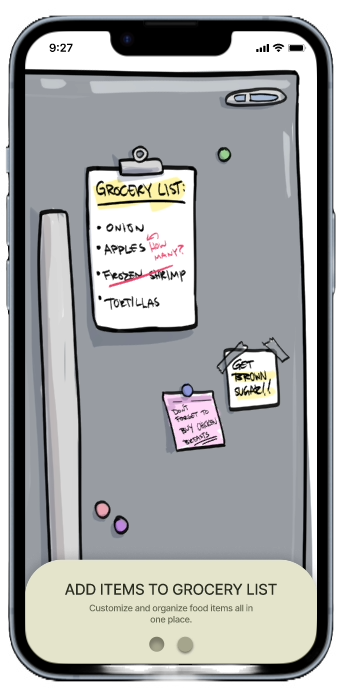 9:27
GROCERY LIST:
• ONION
• APPLES
HOW
MANY?
• FROZEN SHRIMP
• TORTILLAS
GET
BROWN
SUGAR!!
DON'T
FORGET TO
BUY CHICKEN
BREASTS
ADD ITEMS TO GROCERY LIST
Customize and organize food items all in
one place.